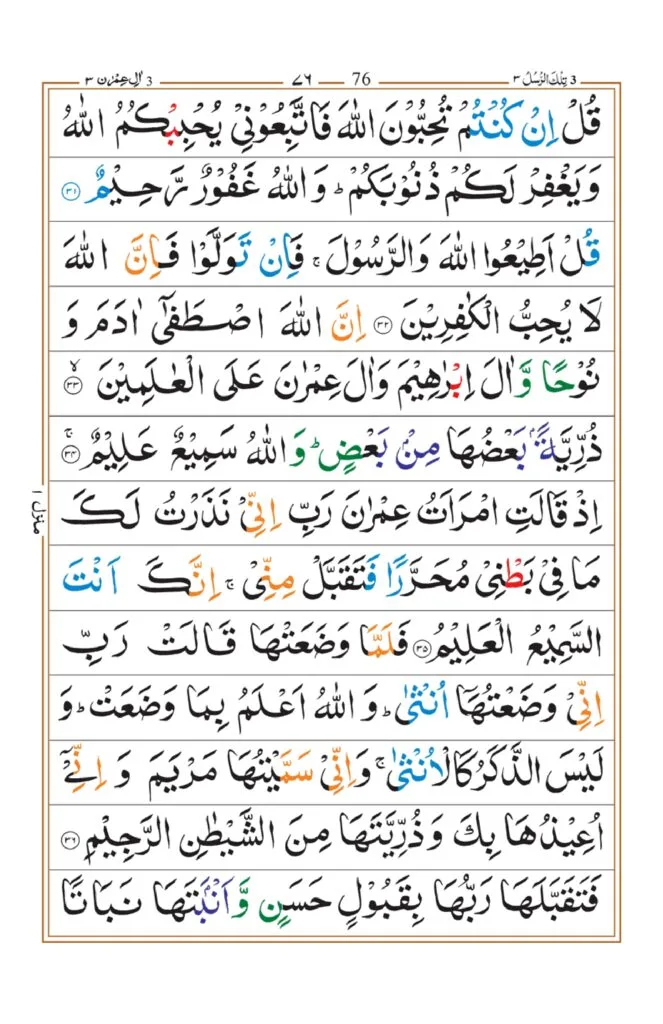 3 تِلْكَ الرُّسُلُ ٣ 76 ٧٦ 3 اٰلِ عِمْرٰن ٣
قُلْ اِنْ كُنْتُمْ تُحِبُّوْنَ اللّٰهَ فَاتَّبِعُوْنِيْ يُحْبِبْكُمُ اللّٰهُ
وَيَغْفِرْ لَكُمْ ذُنُوْبَكُمْ ؕ وَاللّٰهُ غَفُوْرٌ رَّحِيْمٌ ۝۳۱
قُلْ اَطِيْعُوا اللّٰهَ وَالرَّسُوْلَ ۚ فَاِنْ تَوَلَّوْا فَاِنَّ اللّٰهَ
لَا يُحِبُّ الْكٰفِرِيْنَ ۝۳۲ اِنَّ اللّٰهَ اصْطَفٰۤى اٰدَمَ وَ
نُوْحًا وَّاٰلَ اِبْرٰهِيْمَ وَاٰلَ عِمْرٰنَ عَلَى الْعٰلَمِيْنَ ۝۳۳ۙ
ذُرِّيَّةًۢ بَعْضُهَا مِنْۢ بَعْضٍ ؕ وَاللّٰهُ سَمِيْعٌ عَلِيْمٌ ۝۳۴ۚ
اِذْ قَالَتِ امْرَاَتُ عِمْرٰنَ رَبِّ اِنِّيْ نَذَرْتُ لَكَ
مَا فِيْ بَطْنِيْ مُحَرَّرًا فَتَقَبَّلْ مِنِّيْ ۚ اِنَّكَ اَنْتَ
السَّمِيْعُ الْعَلِيْمُ ۝۳۵ فَلَمَّا وَضَعَتْهَا قَالَتْ رَبِّ
اِنِّيْ وَضَعْتُهَاۤ اُنْثٰى ؕ وَاللّٰهُ اَعْلَمُ بِمَا وَضَعَتْ ؕ وَ
لَيْسَ الذَّكَرُ كَالْاُنْثٰى ۚ وَاِنِّيْ سَمَّيْتُهَا مَرْيَمَ وَ اِنِّيْۤ
اُعِيْذُهَا بِكَ وَذُرِّيَّتَهَا مِنَ الشَّيْطٰنِ الرَّجِيْمِ ۝۳۶
فَتَقَبَّلَهَا رَبُّهَا بِقَبُوْلٍ حَسَنٍ وَّاَنْۢبَتَهَا نَبَاتًا
منزل ١